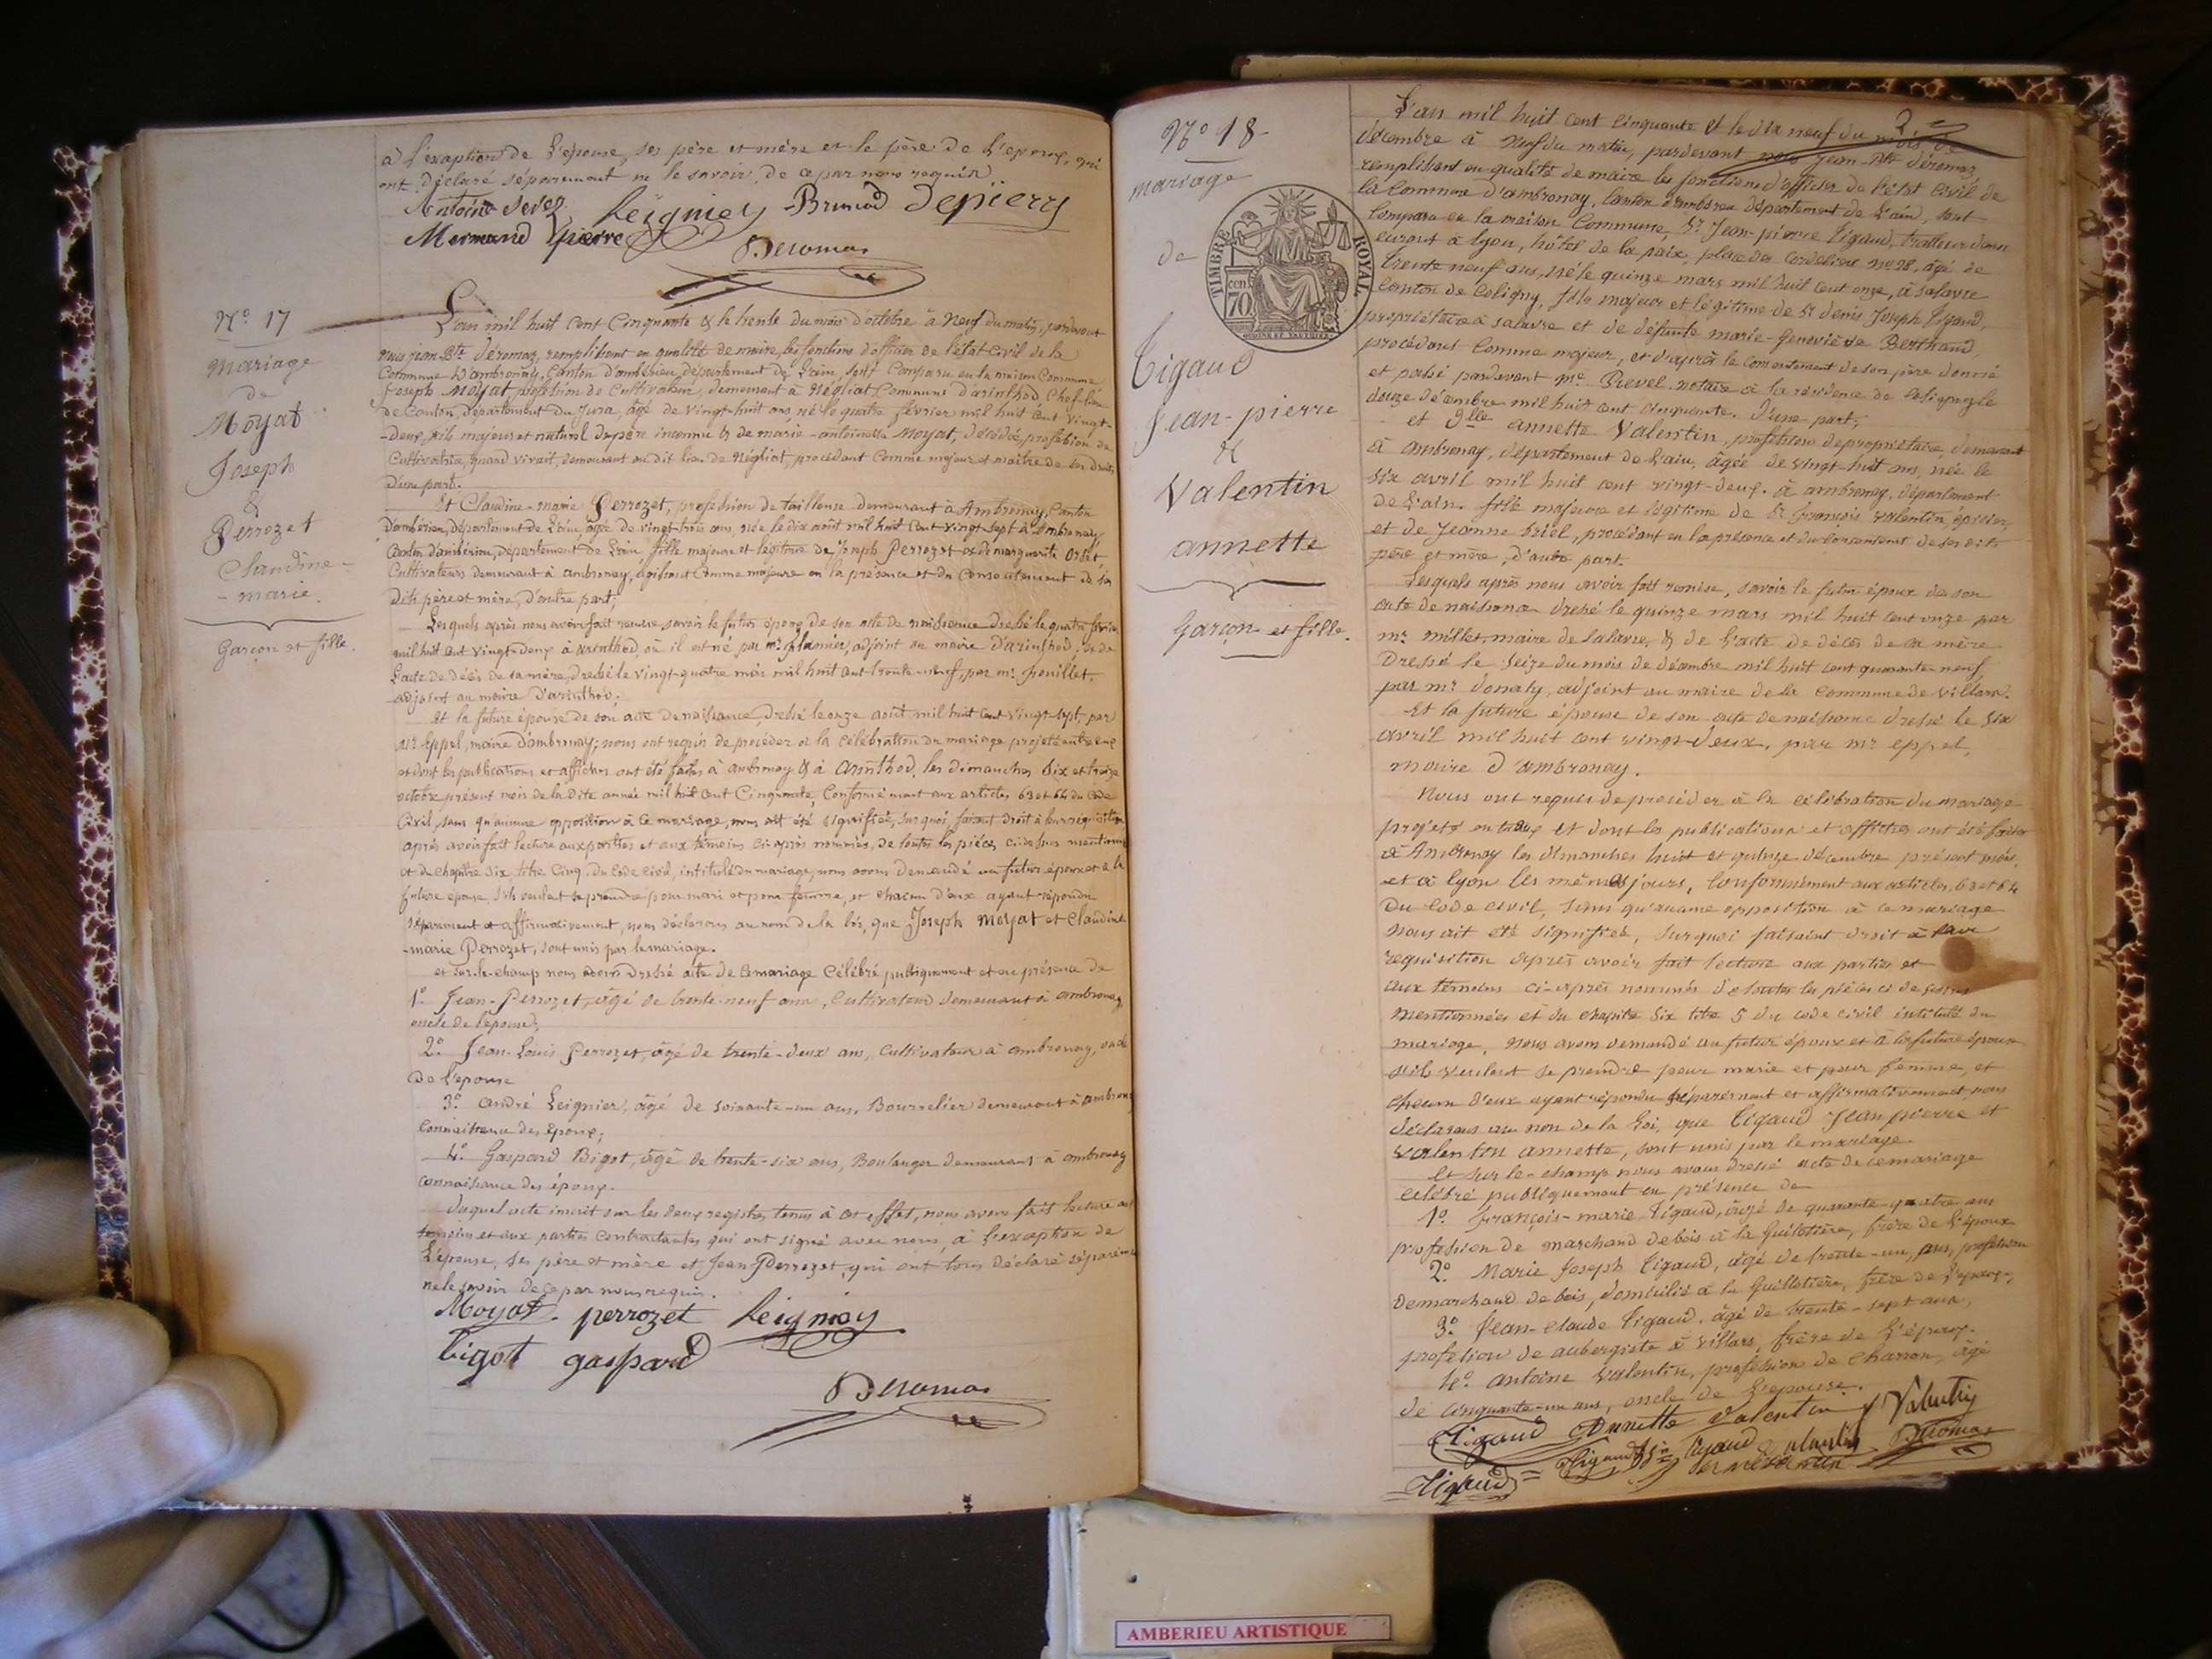 à l'exception de l'épouse, ses père et mère et le père de l'époux, qui
ont déclaré séparément ne le savoir de ce par nous requis.
Antoine Seves Leigniey Brunod Depierry
Mermand pierre
Deromas
N.° 17
Mariage
de
Moyat
Joseph
&
Perrozet
Claudine-
-marie.
Garçon et fille.
L'an mil huit cent cinquante & le trente du mois d'octobre à neuf du matin, pardevant
nous jean-Bte Déromas, remplissant en qualité de maire, les fonctions d'officier de l'état civil de la
Commune d'ambronay, Canton d'ambérieu, département de l'ain, sont comparu en la maison commune
Joseph Moyat, profession de cultivateur, demeurant à Négliat Commune d'arinthod, Chef-lieu
de Canton, département du Jura, âgé de vingt-huit ans, né le quatre février mil huit cent vingt-
-deux, fils majeur et naturel de père inconnu & de marie-antoinette Moyat, décédée, profession de
Cultivatrice, quand vivait, demeurant au dit lieu de Négliat, procédant comme majeur et maître de ses droits
d'une part.
Et Claudine-marie Perrozet, profession de tailleuse demeurant à Ambronay, Canton
d'ambérieu, département de l'ain, âgée de vingt-trois ans, née le dix août mil huit cent vingt-sept à Ambronay
Canton d'ambérieu, département de l'ain, fille majeure et légitime de Joseph Perrozet et de marguerite
Cultivateurs demeurant à ambronay, agissant comme majeure en la présence et du consentement de ses
dits père et mère, d'autre part;
Lesquels après nous avoir fait remise savoir le futur époux de son acte de naissance dressé le quatre février
mil huit cent vingt-deux à arinthod, où il est né par mr. adjoint au maire d'arinthod, & de
l'acte de décès de sa mère, dressé le vingt-quatre mai mil huit cent trente-neuf, par mr. fouillet,
adjoint au maire d'arinthod;
Et la future épouse de son acte de naissance, dressé le onze août mil huit cent vingt-sept, par
mr Eppel, maire d'ambronay; nous ont requis de procéder à la célébration du mariage projeté entre eux
et dont les publications et affiches ont été faites à ambronay & à arinthod, les dimanches six et treize
octobre présent mois de la dite année mil huit cent cinquante, conformément aux articles 63 et 64 du Code
Civil, sans qu'aucune opposition à ce mariage, nous ait été signifiée, sur quoi, faisant droit à leur réquisition
après avoir fait lecture aux parties et aux témoins ci-après nommés, de toutes les pièces ci-dessus mentionnées
et du chapitre six titre cinq, du Code civil, intitulé du mariage, nous avons demandé au futur époux et à la
future épouse s'ils veulent se prendre pour mari et pour femme, et chacun d'eux ayant répondu
séparément et affirmativement, nous déclarons au nom de la loi, que Joseph Moyat et Claudine
-marie Perrozet, sont unis par le mariage.
et sur-le-champ nous avons dressé acte de ce mariage célébré publiquement et en présence de
1.° Jean-Perrozet, âgé de trente-neuf ans, Cultivateur demeurant à ambronay
oncle de l'épouse;
2.° Jean-Louis Perrozet, âgé de trente-deux ans, cultivateur à ambronay, oncle
de l'épouse
3.° andré Leignier, âgé de soixante-un ans, Bourrelier demeurant à ambronay
Connaissance des époux;
4.° Gaspard Bigot, âgé de trente-six ans, Boulanger demeurant à ambronay
connaissance des époux.
duquel acte inscrit sur les deux registres tenus à cet effet, nous avons fait lecture aux
témoins et aux parties contractantes qui ont signé avec nous, à l'exception de
l'épouse, ses père et mère et Jean Perrozet, qui ont tous déclaré séparément
ne le savoir de ce par nous requis.
Moyat. perrozet Leigniey
bigot gaspard
Deromas
N° 18
mariage
de
TIMBRE ROYAL
70 cent
Tigaud
Jean-pierre
&
Valentin
annette
Garçon et fille.
L'an mil huit cent cinquante et le dix neuf du mois de
décembre à neuf du matin, pardevant nous Jean-Bte déromas
remplissant en qualité de maire les fonctions d'officier de l'état civil de
la Commune d'ambronay, Canton d'ambérieu département de l'ain, sont
comparu en la maison Commune, Sr Jean-pierre Tigaud, traiteur demeu
eurant à lyon, hôtel de la paix, place des Cordeliers n° 28, âgé de
trente neuf ans, né le quinze mars mil huit cent onze, à salavre
Canton de Coligny, fils majeur et légitime de Sr denis Joseph Tigaud,
propriétaire à salavre et de défunte marie-Geneviève Berthaud,
procédant comme majeur, et d'après le consentement de son père donné
et passé pardevant me Prevel notaire à la résidence de
douze décembre mil huit cent cinquante. d'une part;
et Dlle annette Valentin, profession de propriétaire, demeurant
à ambronay, département de l'ain, âgée de vingt-huit ans, née le
six avril mil huit cent vingt-deux, à ambronay, département
de l'ain, fille majeure et légitime de Sr françois valentin, épicier,
et de Jeanne briel, procédant en la présence et du consentement de ses dits
père et mère, d'autre part.
Lesquels après nous avoir fait remise, savoir le futur époux de son
acte de naissance dressé le quinze mars mil huit cent onze par
mr. millet, maire de salavre, & de l'acte de décès de sa mère
dressé le seize du mois de décembre mil huit cent quarante neuf
par mr donaty, adjoint au maire de la commune de villars.
Et la future épouse de son acte de naissance dressé le six
avril mil huit cent vingt-deux, par mr eppel,
maire d'ambronay.
Nous ont requis de procéder à la célébration du mariage
projeté entr'eux et dont les publications et affiches ont été faites
à Ambronay les dimanches huit et quinze décembre présent mois,
et à lyon les mêmes jours, conformément aux articles 63 et 64
du code civil, sans qu'aucune opposition à ce mariage
nous ait été signifiée, sur quoi faisant droit à leur
réquisition après avoir fait lecture aux parties et
aux témoins ci-après nommés de toutes les pièces ci dessus
mentionnées et du chapitre six titre 5 du code civil intitulé du
mariage, nous avons demandé au futur époux et à la future épouse
s'ils veulent se prendre pour marie et pour femme, et
chacun d'eux ayant répondu séparément et affirmativement, nous
déclarons au nom de la loi, que Tigaud Jean pierre et
valentin annette, sont unis par le mariage.
Et sur le-champ nous avons dressé acte de ce mariage
célébré publiquement en présence de
1.° françois-marie Tigaud, âgé de quarante-quatre ans
profession de marchand de bois à la Guillotière, frère de l'époux
2.° Marie Joseph Tigaud, âgé de trente-un, ans, profession
de marchand de bois, domicilié à la Guillotière, frère de l'époux;
3.° Jean-claude Tigaud, âgé de trente-sept ans,
profession de aubergiste à villars, frère de l'époux.
4.° antoine valentin, profession de charron, âgé
de cinquante-un ans, oncle de l'épouse.
Tigaud Annette valentin f Valentin
Tigaud Tigaud tigaud valentin Deromas
AMBERIEU ARTISTIQUE